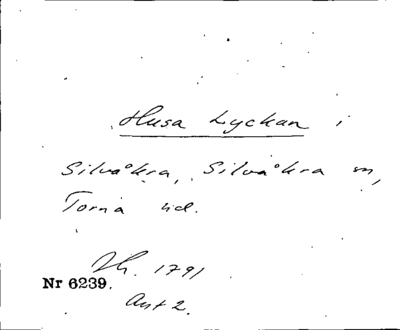 Husa Lyckan i
Silvåkra, Silvåkra sn,
Torna hd.
Jh. 1791
Nr 6239.
Akt 2.